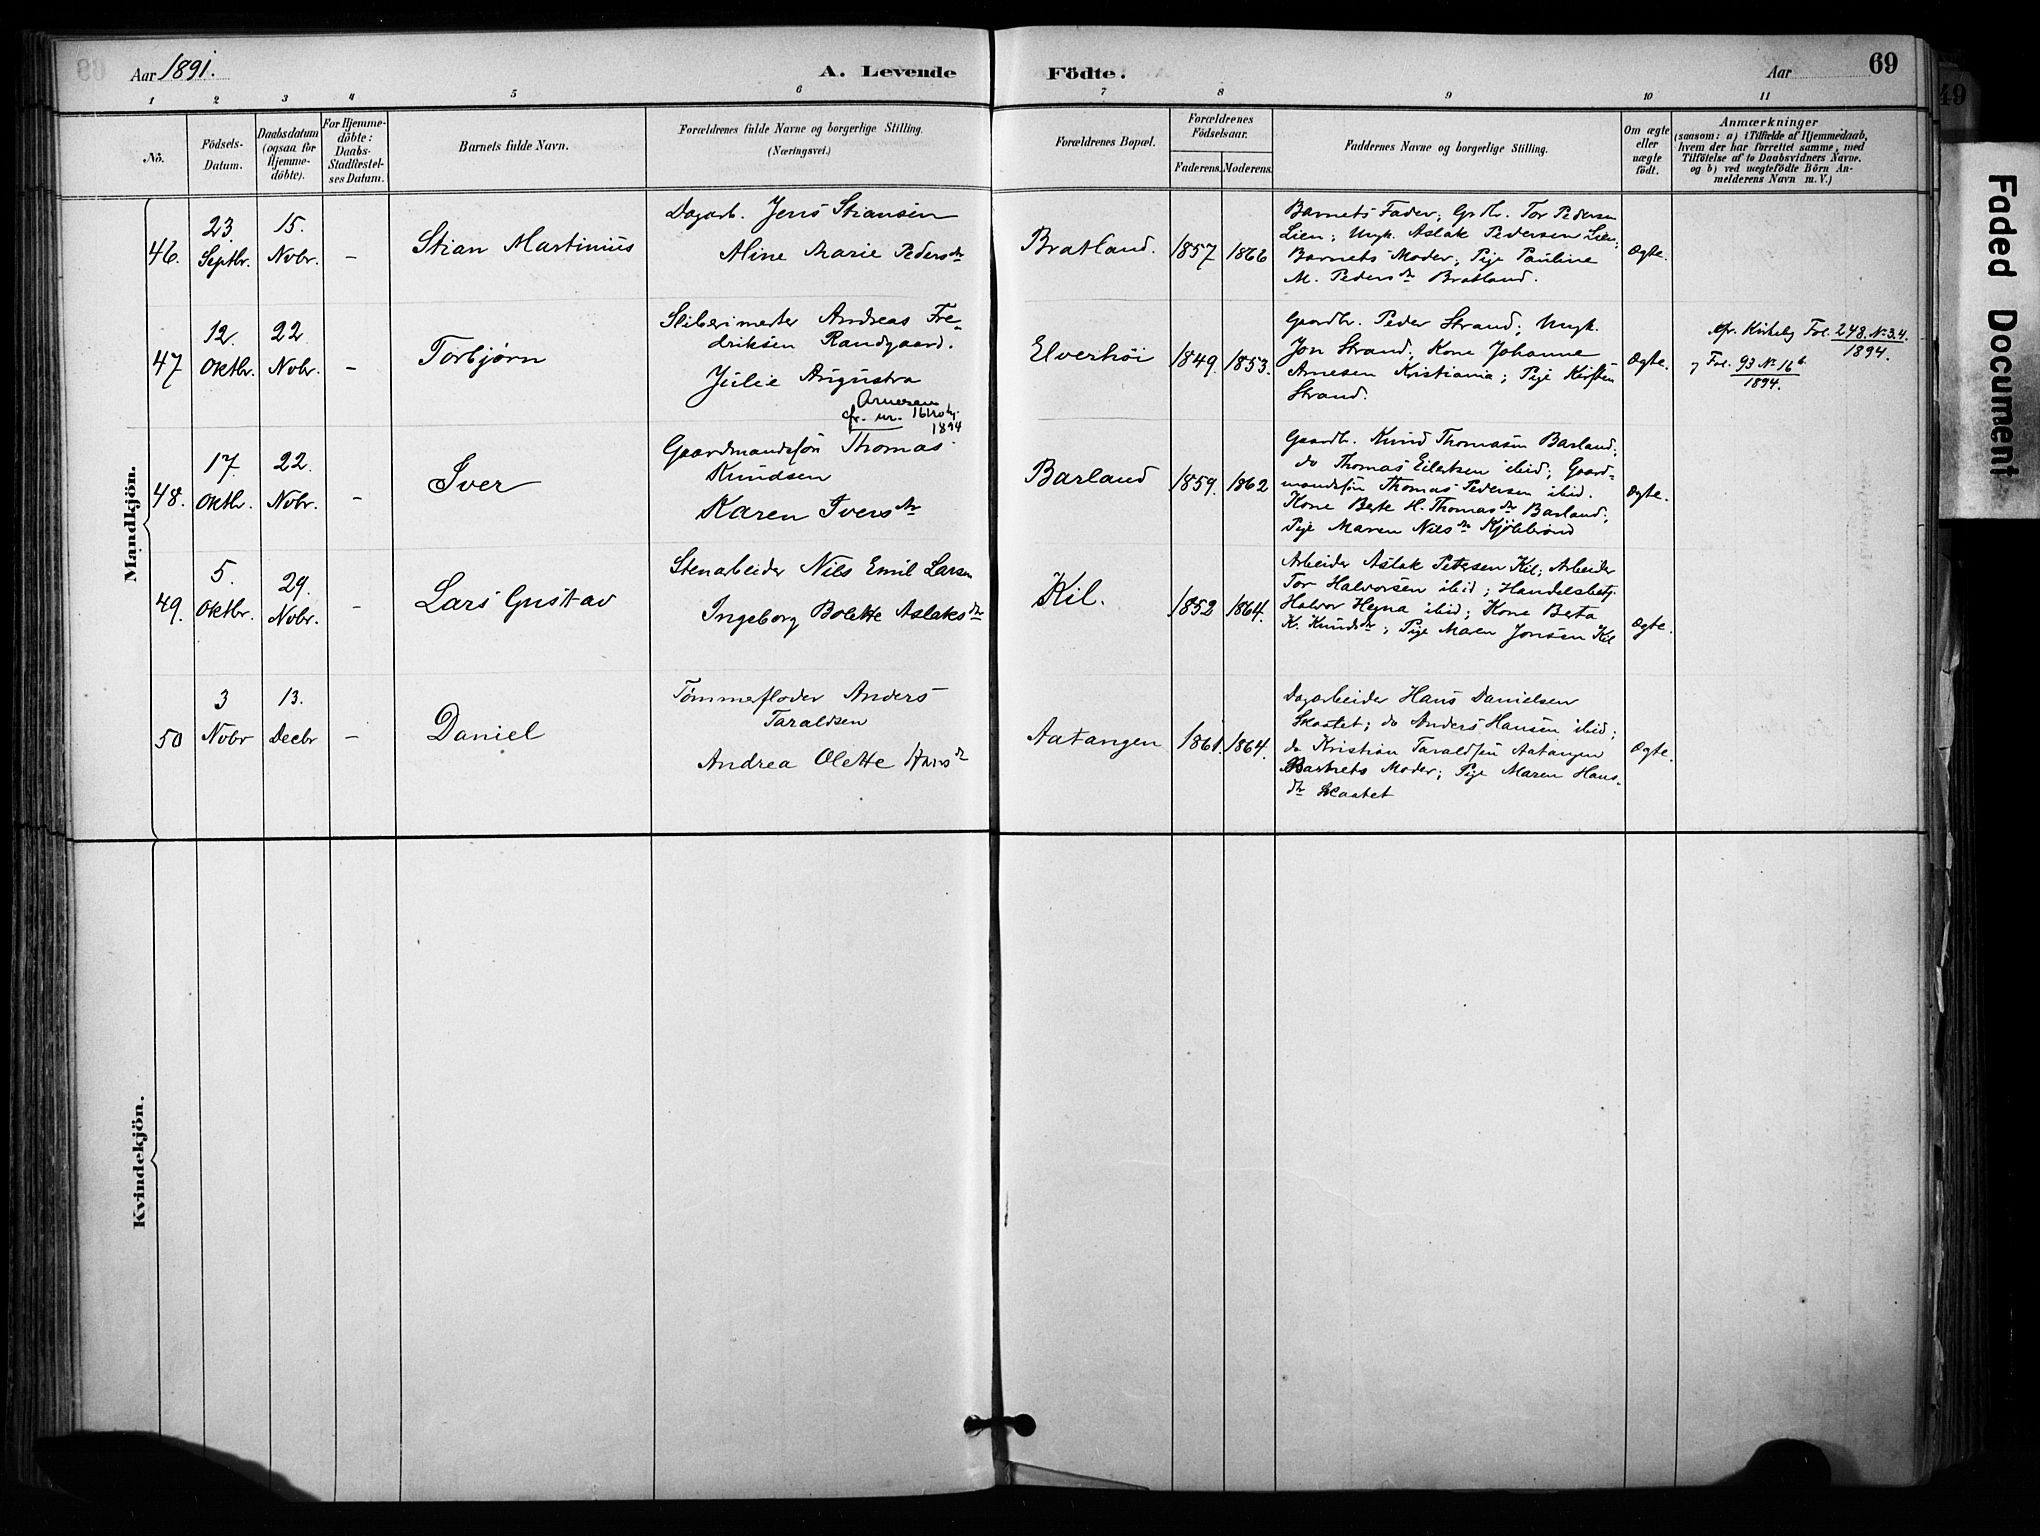 Aar 1891.
A. Levende Födte.
Aar
69
49
1 2 3 4 5 6 7 8 9 10 11
Nö.
Födsels-
Datum.
Daabsdatum
(ogsaa for
Hjemme-
döbte).
For Hjemme-
döbte:
Daabs-
Stadfæstel-
ses Datum.
Barnets fulde Navn.
Forældrenes fulde Navne og borgerlige Stilling.
(Næringsvei.)
Forældrenes Bopæl.
Forældrenes
Födselsaar.
Faderens. Moderens.
Faddernes Navne og borgerlige Stilling.
Om ægte
eller
uægte
födt.
Anmærkninger
(saasom: a) i Tilfælde af Hjemmedaab,
hvem der har forrettet samme, med
Tilföielse af to Daabsvidners Navne.
og b) ved uægtefödte Börn An-
melderens Navn m. V.)
Mandkjön.
46.
23
Septbr.
15.
Novbr.
-
Stian Martinius
Dagarb. Jens Stiansen
Aline Marie Pedersdtr
Bratland.
1857
1866
Barnets Fader; Grdbr. Tor Pedersen
Lien; Ungk. Aslak Pedersen Lien;
Barnets Moder; Pige Pauline
M. Pedersdtr Bratland.
Ægte.
47
12.
Oktbr.
22
Novbr.
-
Torbjørn
Sliberimester Andreas Fre-
driksen Randgaard.
Julie Augusta
Arnesen
cfr. nr. 16
1894
Elverhöi
1849.
1853.
Gaardbr. Peder Strand; Ungk.
Jon Strand; Kone Johanne
Arnesen Kristiania; Pige Kirsten
Strand.
Ægte.
cfr. Kirkebg Fol. 248. No 3.4.
1894.
Fol. 93 No 16 b
1894.
48.
17.
Oktbr.
22.
Novbr.
-
Iver
Gaardmandssøn Thomas
Knudsen
Karen Iversdtr
Barland
1859.
1862
Gaardbr. Knud Thomasen Barland;
do Thomas Eilertsen ibid; Gaard-
mandssøn Thomas Pedersen ibid.
Kone Berte H. Thomasdtr Barland;
Pige Maren Nilsdtr Kjölebrönd
Ægte.
49.
5.
Oktbr.
29.
Novbr.
-
Lars Gustav
Stenarbeider Nils Emil Larsen
Ingeborg Bolette Aslaksdtr
Kil.
1852
1864.
Arbeider Aslak Petersen Kil; Arbeider
Tor Halvorsen ibid; Handelsbetj.
Halvor Hegna ibid; Kone Berta
K. Knudsdtr; Pige Maren Jonsen Kil
Ægte.
50
3
Novbr
13.
Decbr
-
Daniel
Tømmerfløder Anders
Taraldsen
Andrea Olette Hansdtr
Aatangen
1861.
1864.
Dagarbeider Hans Danielsen
Skaatet; do Anders Hansen ibid;
do Kristian Taraldsen Aatangen
Barnets Moder; Pige Maren Hans-
dtr Skaatet
Ægte.
Kvindekjön.
Faded Document